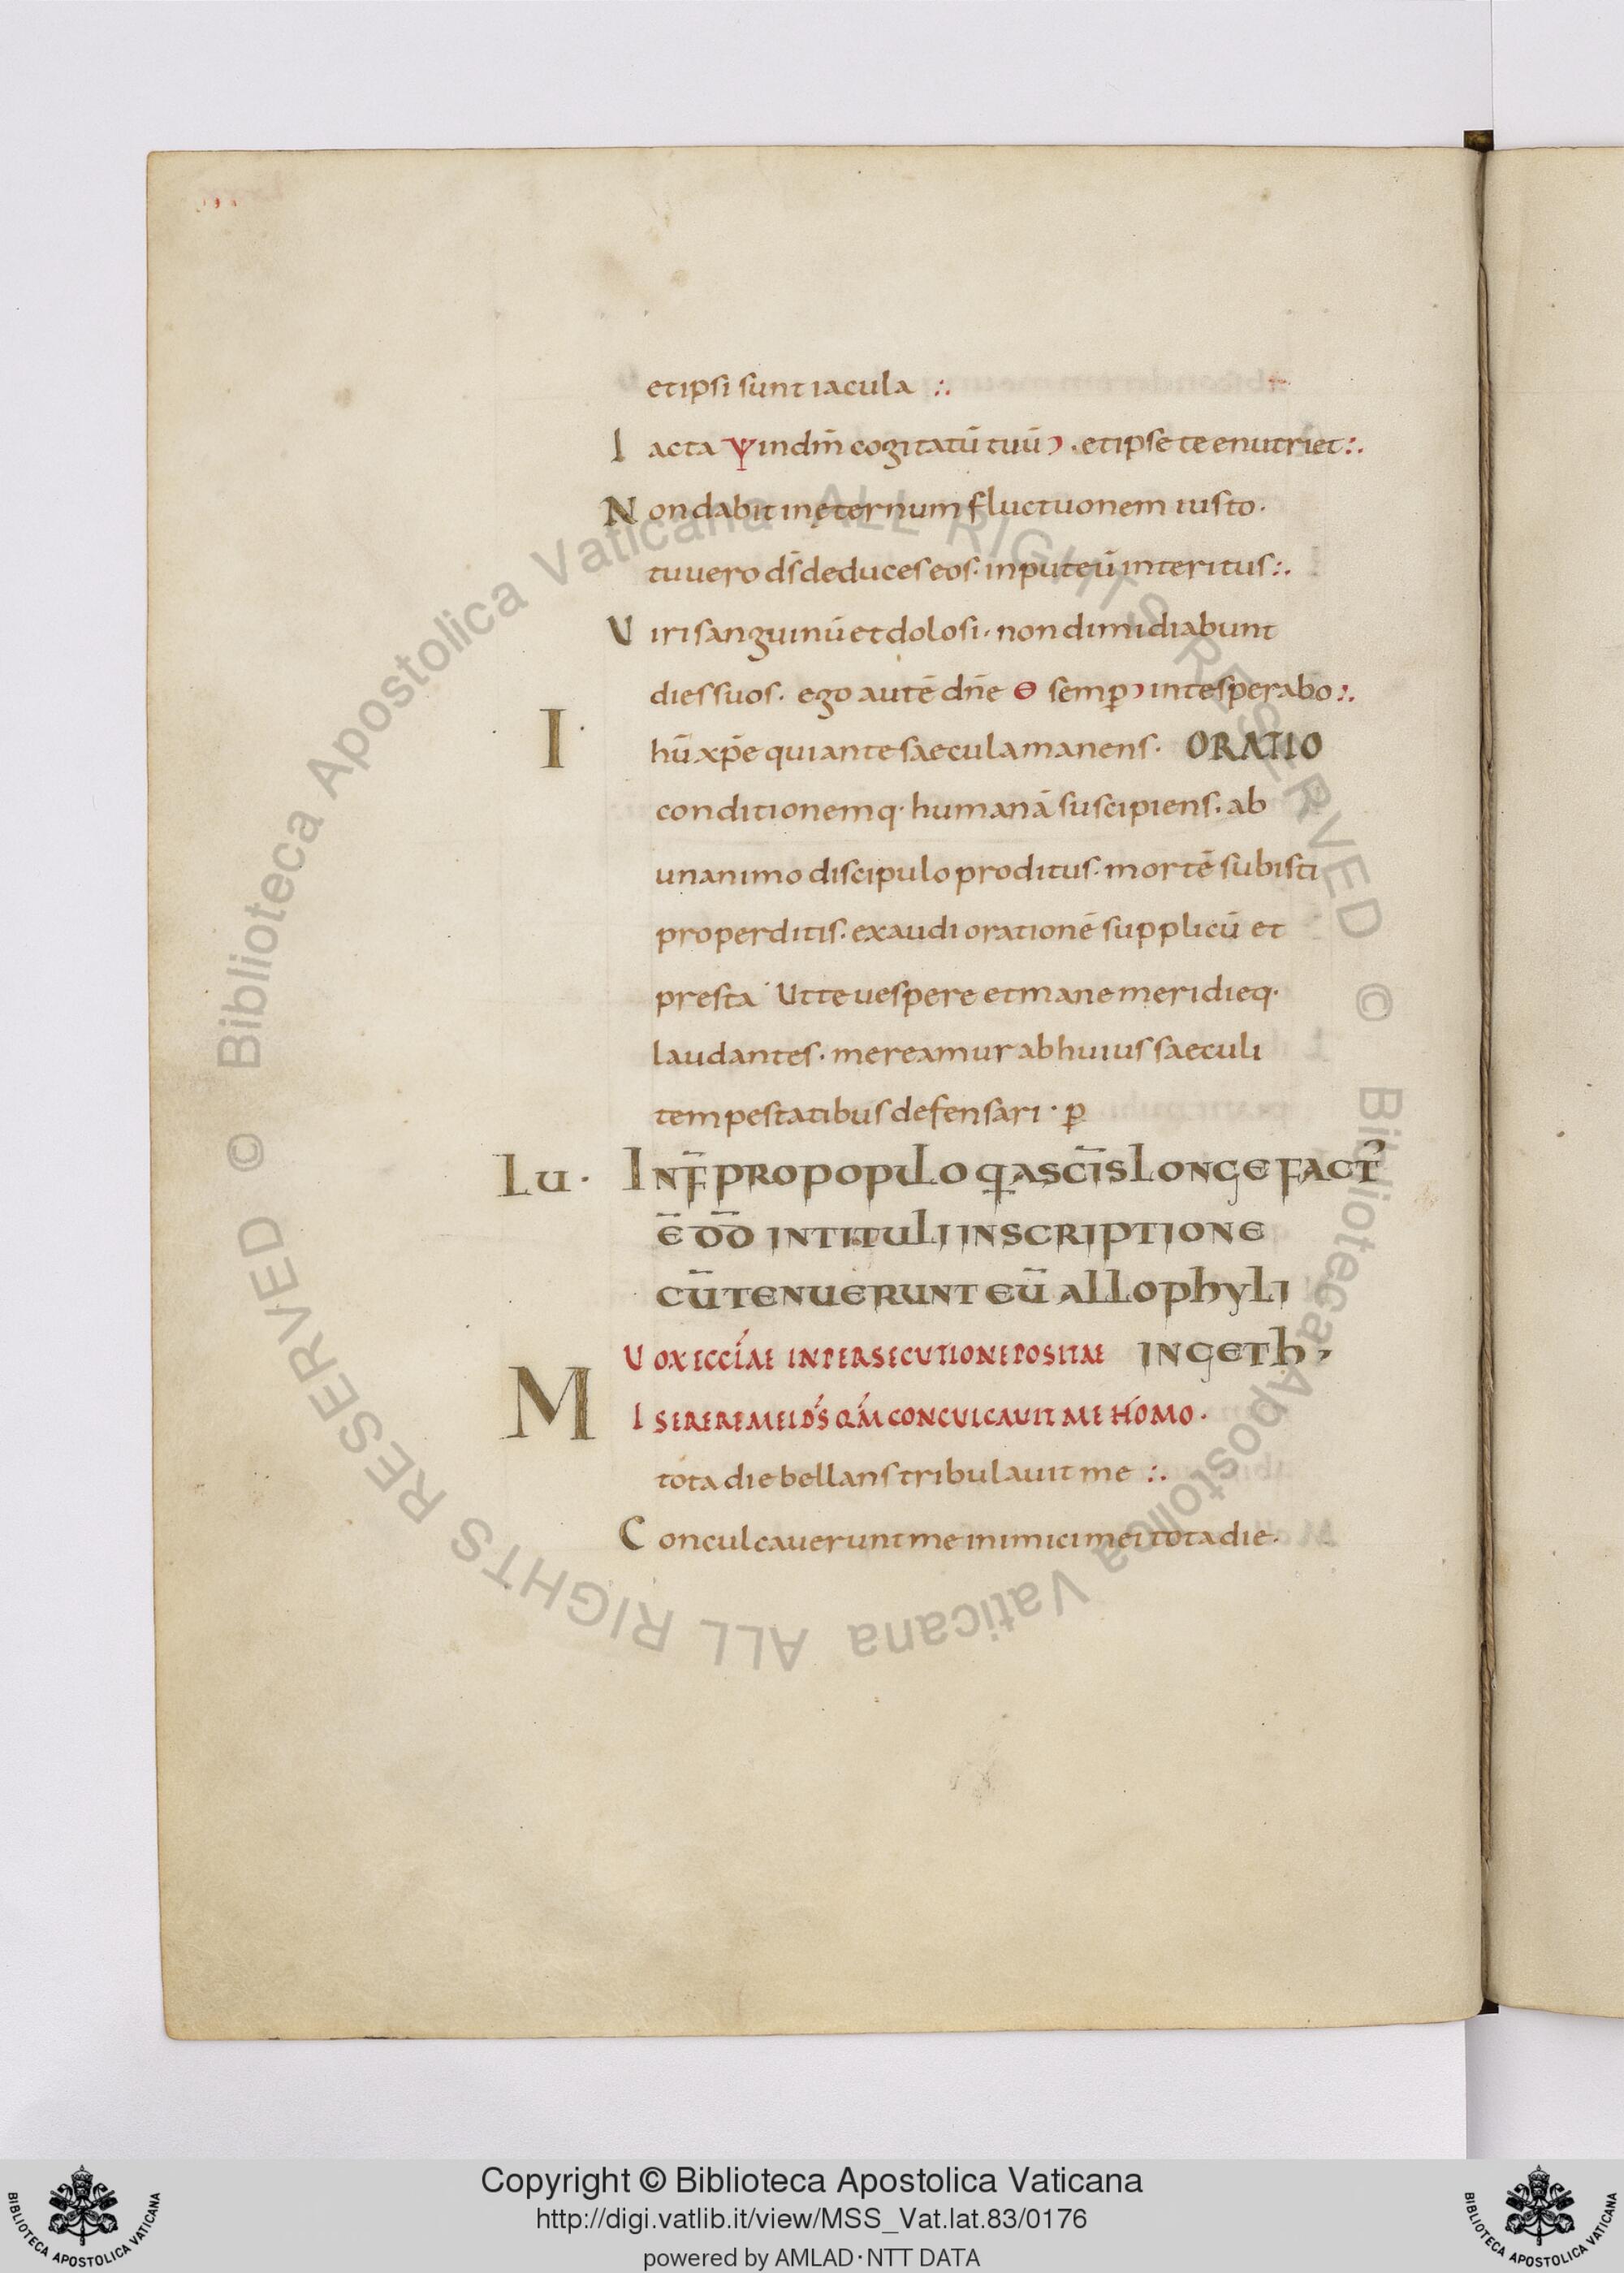 et ipsi sunt iacula :.
Iacta Ψ in dnm̄ cogitatū tuū ꓛ · et ipse te enutriet :.
Non dabit in ęternum fluctuonem iusto ·
tu uero d̄s deduces eos · in puteū interitus :.
Uiri sanguinū et dolosi · non dimidiabunt
dies suos · ego autē dn̄e Ѳ semꝑ ꓛ in te sperabo :.
Ihū xp̄e qui ante saecula manens · ORATIO
conditionemq· humanā suscipiens · ab
unanimo discipulo proditus · mortē subisti
pro perditis · exaudi orationē supplicū et
presta · Ut te uespere et mane meridieq·
laudantes · mereamur ab huius saeculi
tempestatibus defensari · ꝑ
LU · IN F̄ PRO POPULO Q A SC̄IS LONGE FACT
Ē D̄D IN TITULI INSCRIPTIONE
CŪ TENUERUNT EŪ ALLOPHYLI
UOX ECCĹAE IN PERSECUTIONE POSITAE IN GETH ;
MISERERE MEI D́S QḾ CONCULCAUIT ME HOMO ·
tota die bellans tribulauit me :.
Conculcauerunt me inimici mei tota die ·
© Biblioteca Apostolica Vaticana ALL RIGHTS RESERVED
© Biblioteca Apostolica Vaticana ALL RIGHTS RESERVED
Copyright © Biblioteca Apostolica Vaticana
http://digi.vatlib.it/view/MSS_Vat.lat.83/0176
powered by AMLAD·NTT DATA
BIBLIOTECA APOSTOLICA VATICANA
BIBLIOTECA APOSTOLICA VATICANA